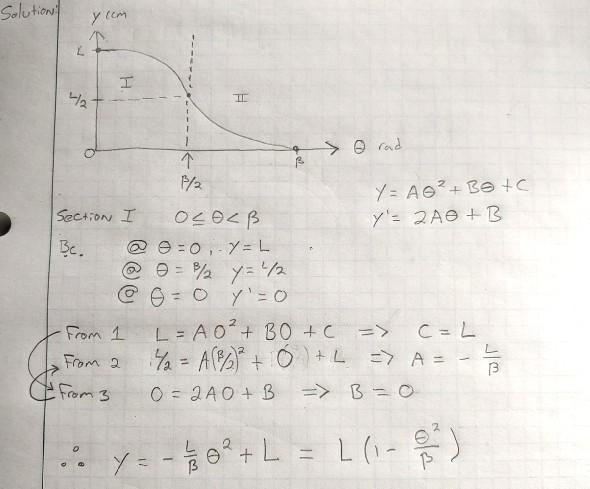 Solution:
y (cm
L
I
L/2
II
0
θ rad
β
β/2
y = Aθ² + Bθ + C
y' = 2Aθ + B
Section I 0 ≤ θ < β
Bc. @ θ = 0, y = L
@ θ = β/2 y = L/2
@ θ = 0 y' = 0
From 1 L = A0² + B0 + C => C = L
From 2 L/2 = A(β/2)² + 0 + L => A = - L/β
From 3 0 = 2A0 + B => B = 0
∴ y = - L/β θ² + L = L(1 - θ²/β)